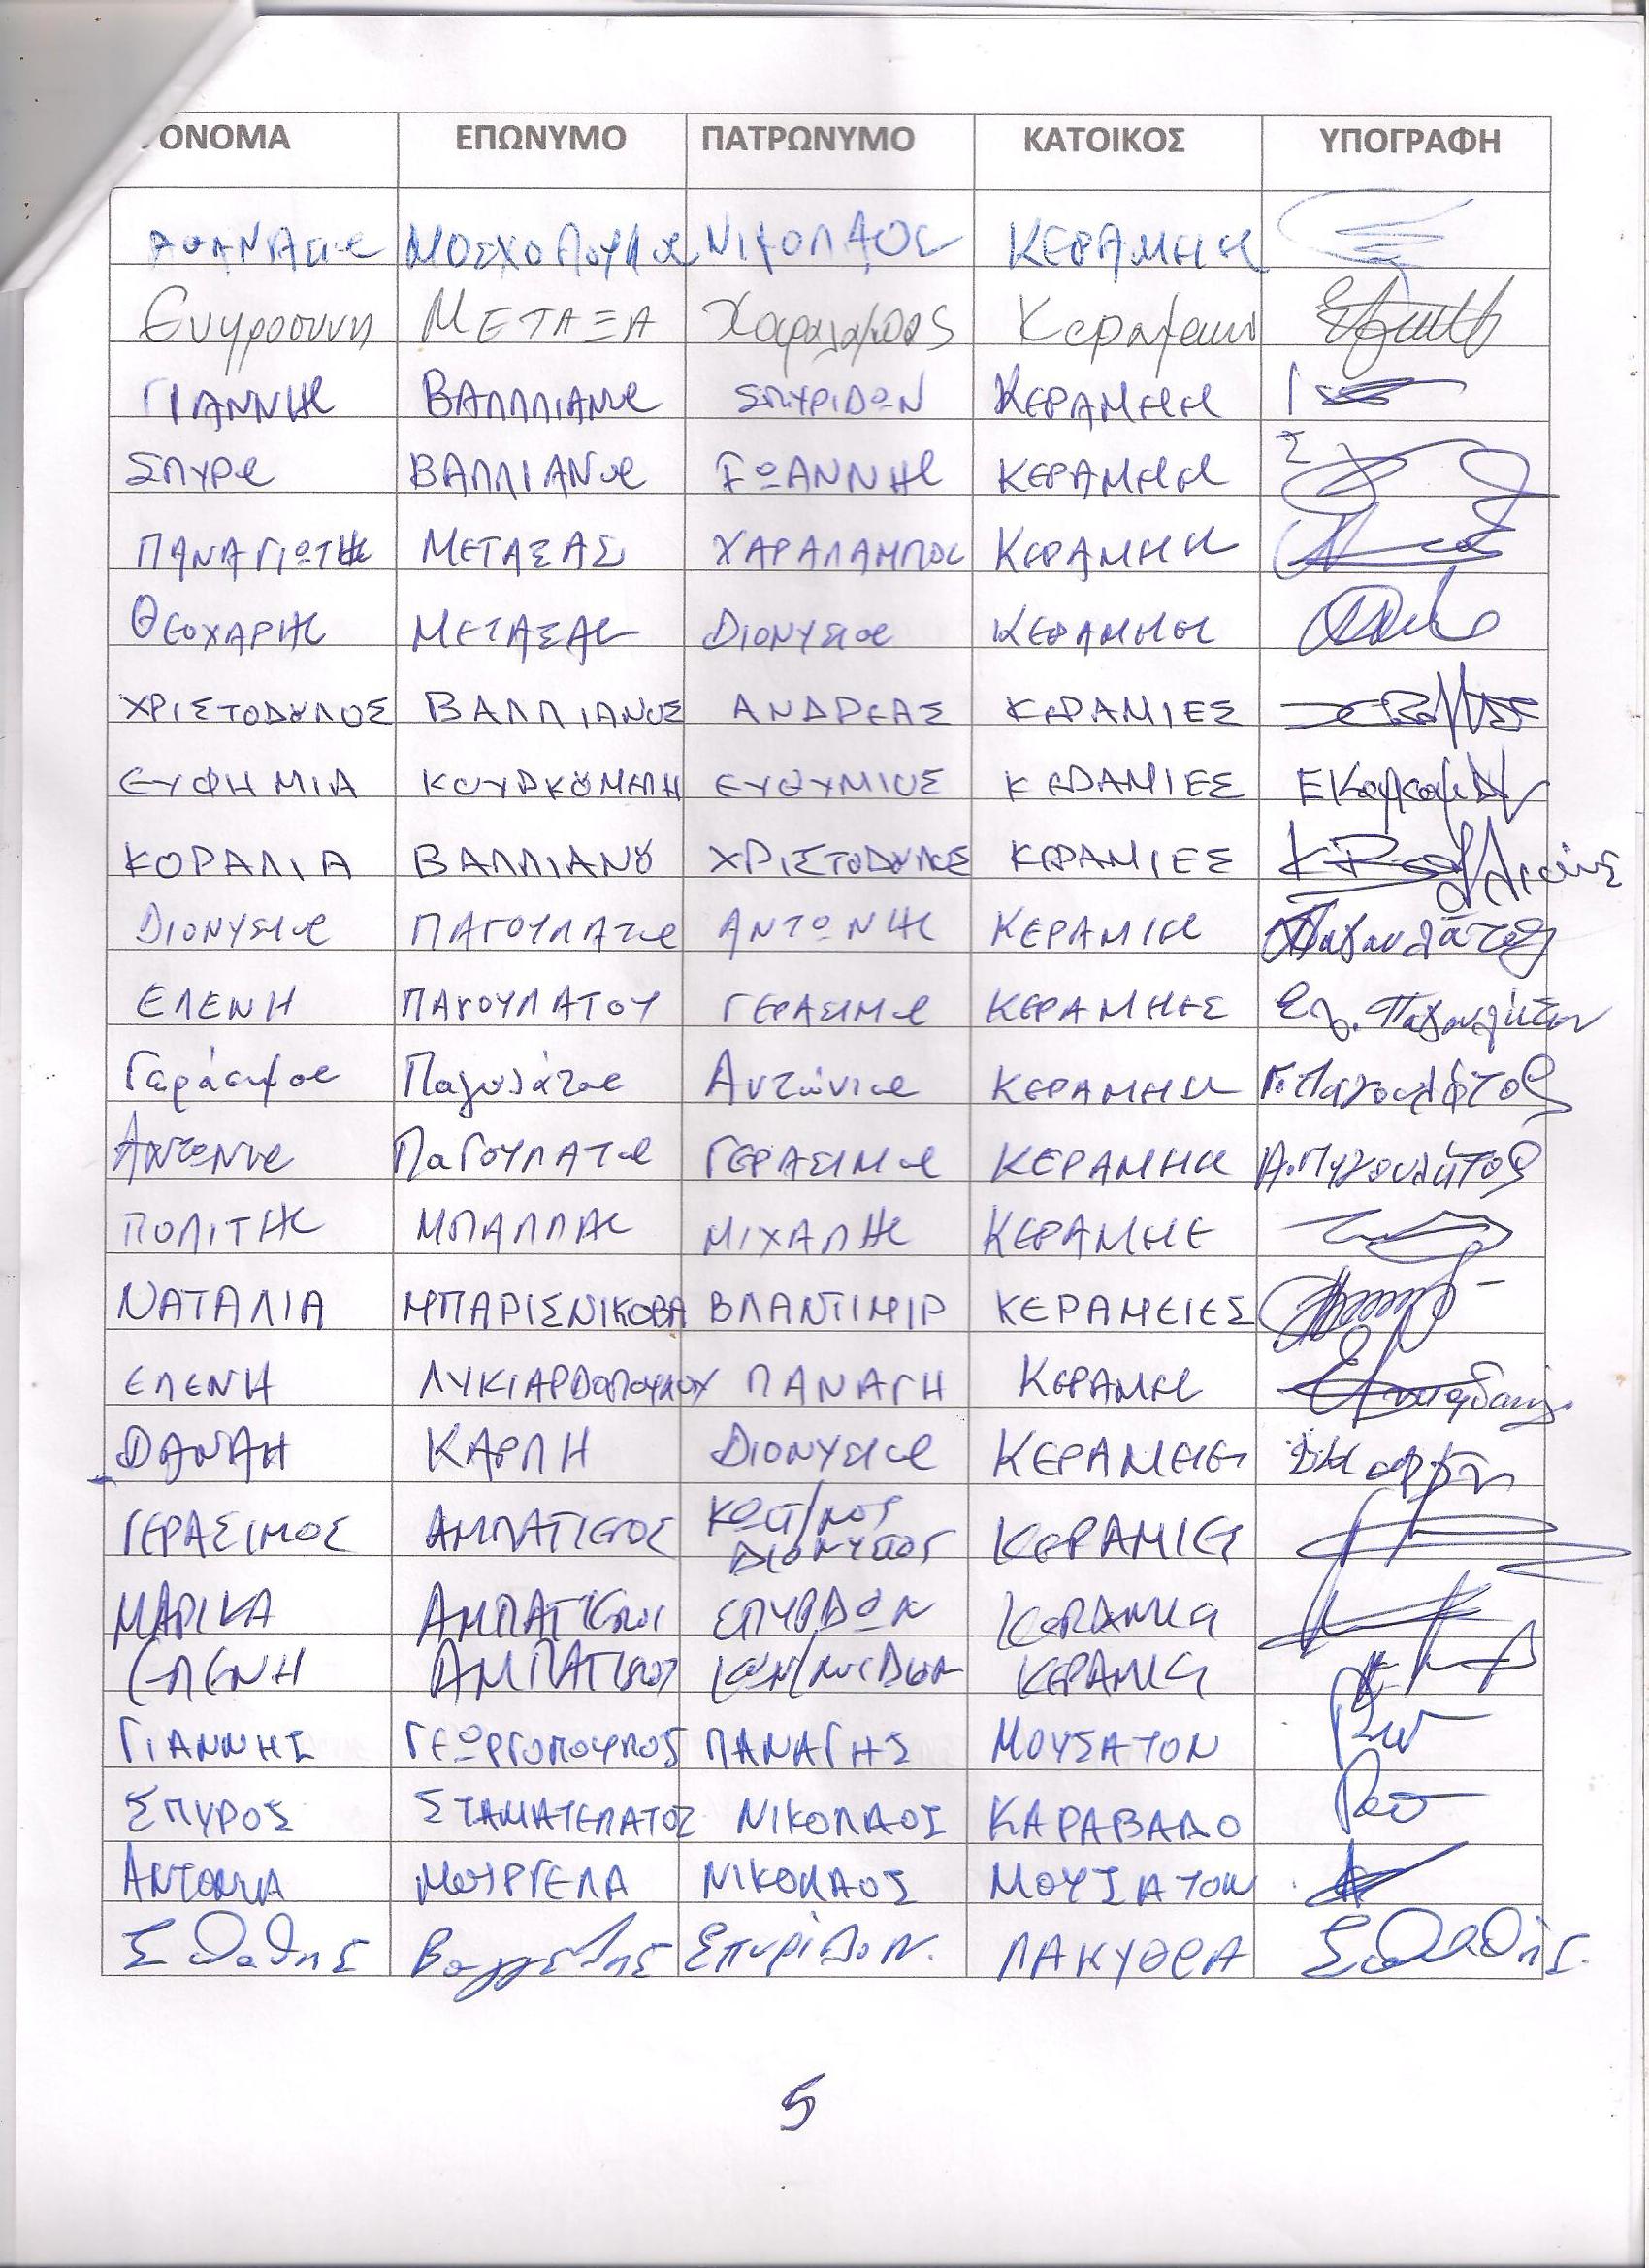 ΟΝΟΜΑ ΕΠΩΝΥΜΟ ΠΑΤΡΩΝΥΜΟ ΚΑΤΟΙΚΟΣ ΥΠΟΓΡΑΦΗ
ΑΘΑΝΑΣΙΟΣ ΜΟΣΧΟΠΟΥΛΟΣ ΝΙΚΟΛΑΟΣ ΚΕΡΑΜΗΕΣ
Ευφροσυνη ΜΕΤΑΞΑ Χαραλαμπος Κεραμειων
ΓΙΑΝΝΗΣ ΒΑΛΛΛΙΑΝΟΣ ΣΠΥΡΙΔΩΝ ΚΕΡΑΜΗΕΣ
ΣΠΥΡΟΣ ΒΑΛΛΙΑΝΟΣ ΙΩΑΝΝΗΣ ΚΕΡΑΜΗΕΣ
ΠΑΝΑΓΙΩΤΗΣ ΜΕΤΑΞΑΣ ΧΑΡΑΛΑΜΠΟΣ ΚΕΡΑΜΗΕΣ
ΘΕΟΧΑΡΗΣ ΜΕΤΑΞΑΣ ΔΙΟΝΥΣΙΟΣ ΚΕΡΑΜΗΕΣ
ΧΡΙΣΤΟΔΟΥΛΟΣ ΒΑΛΛΙΑΝΟΣ ΑΝΔΡΕΑΣ ΚΕΡΑΜΙΕΣ
ΕΥΦΗΜΙΑ ΚΟΥΡΚΟΥΜΕΛΗ ΕΥΘΥΜΙΟΣ ΚΕΡΑΜΙΕΣ
ΚΟΡΑΛΙΑ ΒΑΛΛΙΑΝΟΥ ΧΡΙΣΤΟΔΟΥΛΟΣ ΚΕΡΑΜΙΕΣ
ΔΙΟΝΥΣΙΟΣ ΠΑΓΟΥΛΑΤΟΣ ΑΝΤΩΝΗΣ ΚΕΡΑΜΙΕΣ Παγουλάτος
ΕΛΕΝΗ ΠΑΓΟΥΛΑΤΟΥ ΓΕΡΑΣΙΜΟΣ ΚΕΡΑΜΗΕΣ Ελ. Παγουλάτου
Γεράσιμος Παγουλάτος Αντώνιος ΚΕΡΑΜΗΕΣ Γ. Παγουλάτος
ΑΝΤΩΝΙΟΣ ΠαΓΟΥΛΑΤΟΣ ΓΕΡΑΣΙΜΟΣ ΚΕΡΑΜΗΕΣ Α. Παγουλάτος
ΠΟΛΙΤΗΣ ΜΠΑΛΛΑΣ ΜΙΧΑΛΗΣ ΚΕΡΑΜΗΕ
ΝΑΤΑΛΙΑ ΜΠΑΡΙΣΝΙΚΟΒΑ ΒΛΑΝΤΙΜΙΡ ΚΕΡΑΜΕΙΕΣ
ΕΛΕΝΗ ΛΥΚΙΑΡΔΟΠΟΥΛΟΥ ΠΑΝΑΓΗ ΚΕΡΑΜΗΕΣ
ΔΑΝΑΗ ΚΑΡΛΗ ΔΙΟΝΥΣΙΟΣ ΚΕΡΑΜΕΙΕΣ
ΓΕΡΑΣΙΜΟΣ ΑΜΠΑΤΙΕΛΟΣ ΚΩΣΤ/ΝΟΣ ΔΙΟΝΥΣΙΟΣ ΚΕΡΑΜΙΕΣ
ΜΑΡΙΚΑ ΑΜΠΑΤΙΕΛΟΥ ΣΠΥΡΙΔΩΝ ΚΕΡΑΜΙΕΣ
ΕΛΕΝΗ ΑΜΠΑΤΙΕΛΟΥ ΚΕΡΑΜΙΕΣ
ΓΙΑΝΝΗΣ ΓΕΩΡΓΟΠΟΥΛΟΣ ΠΑΝΑΓΗΣ ΜΟΥΣΑΤΟΝ
ΣΠΥΡΟΣ ΣΤΑΜΑΤΕΛΑΤΟΣ ΝΙΚΟΛΑΟΣ ΚΑΡΑΒΑΔΟ
ΑΝΤΩΝΙΑ ΜΟΥΡΓΕΛΑ ΝΙΚΟΛΑΟΣ ΜΟΥΣΑΤΟΝ
Σταθης Βαγγελης Σπυρίδων. ΛΑΚΥΘΡΑ Σταθης
5